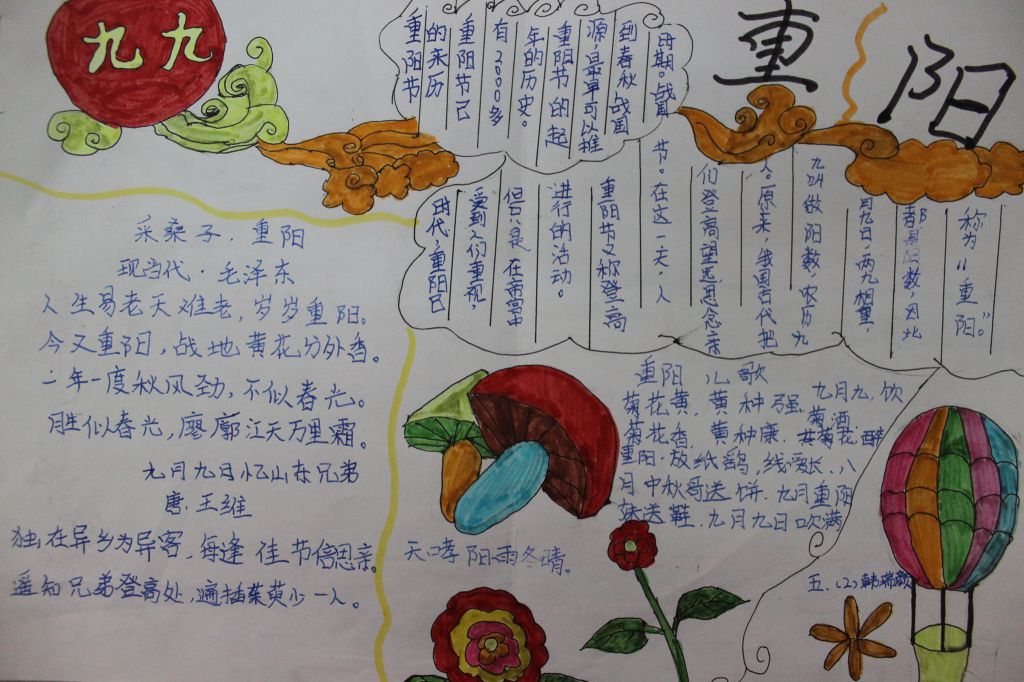 九九
重阳
重阳节
的来历
重阳节已
有2000多
年的历史。
重阳节的起
源,最早可以推
到春秋战国
时期。战国
时代,重阳已
受到人们重视,
但只是在帝宫中
进行的活动。
重阳节又称登高
节。在这一天,人
们登高望远,思念亲
人。原来,我国古代把
九叫做阳数,农历九
月九日,两九相重,
都是阳数,因此
称为“重阳。”
采桑子.重阳
现当代·毛泽东
人生易老天难老,岁岁重阳。
今又重阳,战地黄花分外香。
一年一度秋风劲,不似春光。
胜似春光,廖廓江天万里霜。
九月九日忆山东兄弟
唐.王维
独在异乡为异客,每逢佳节倍思亲。
遥知兄弟登高处,遍插茱萸少一人。
重阳 儿歌
菊花黄,黄种强,九月九,饮
菊酒.
菊花香,黄种康.共菊花,醉
重阳.放纸鹞,线爱长.八
月中秋哥送饼.九月重阳
妹送鞋.九月九日吹满
天哮阳雨冬晴。
五.(2)韩瑞颜